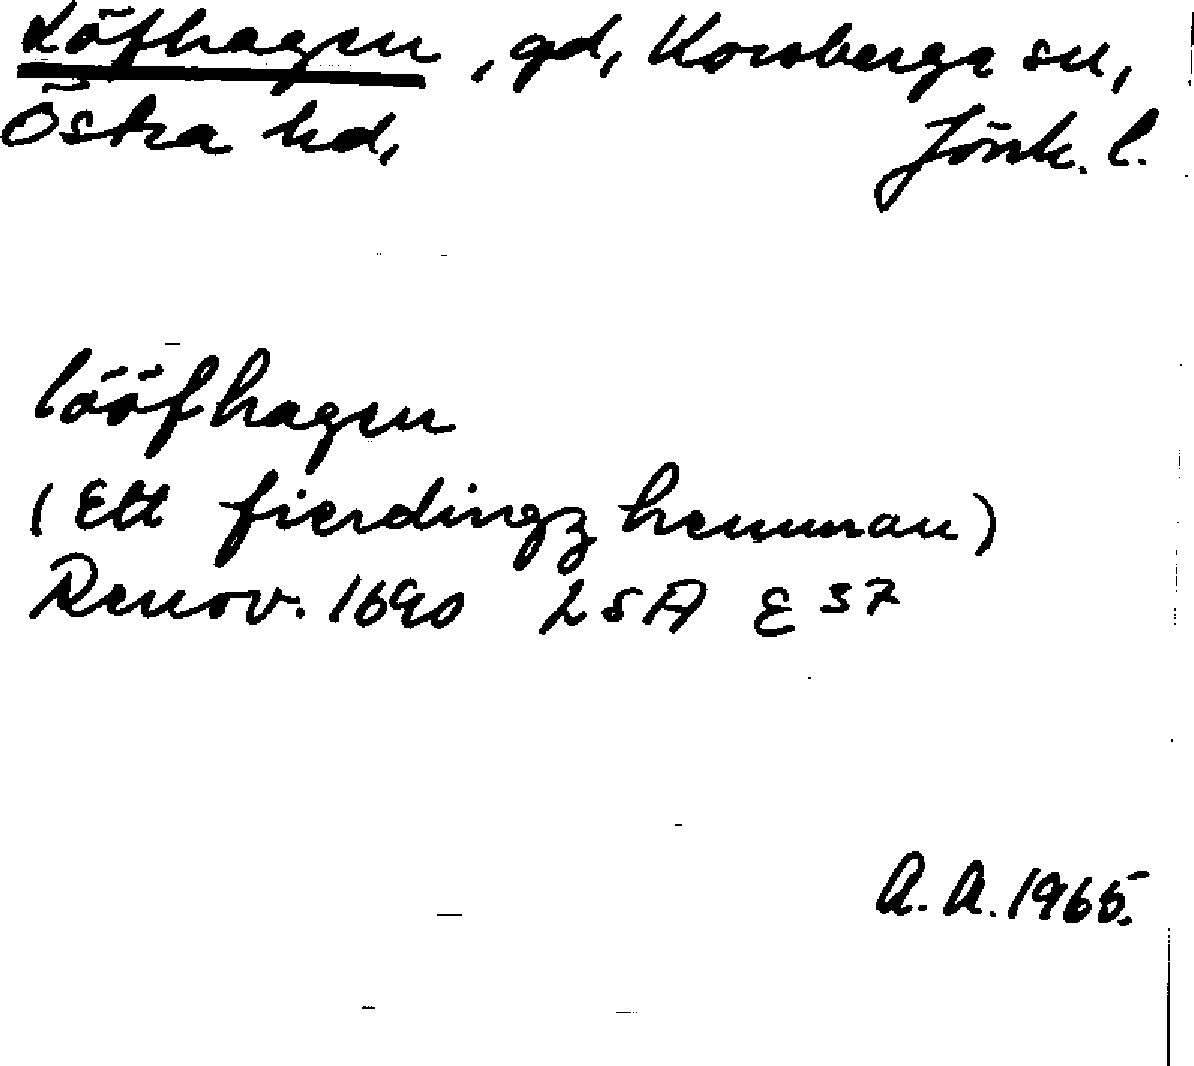 Löfhagen, gd, Korsberga sn,
Östra hd, Jönk. l.
Lööfhagen
(Ett fierdingz hemman)
Renov. 1690 LSA E 37
A. A. 1965.